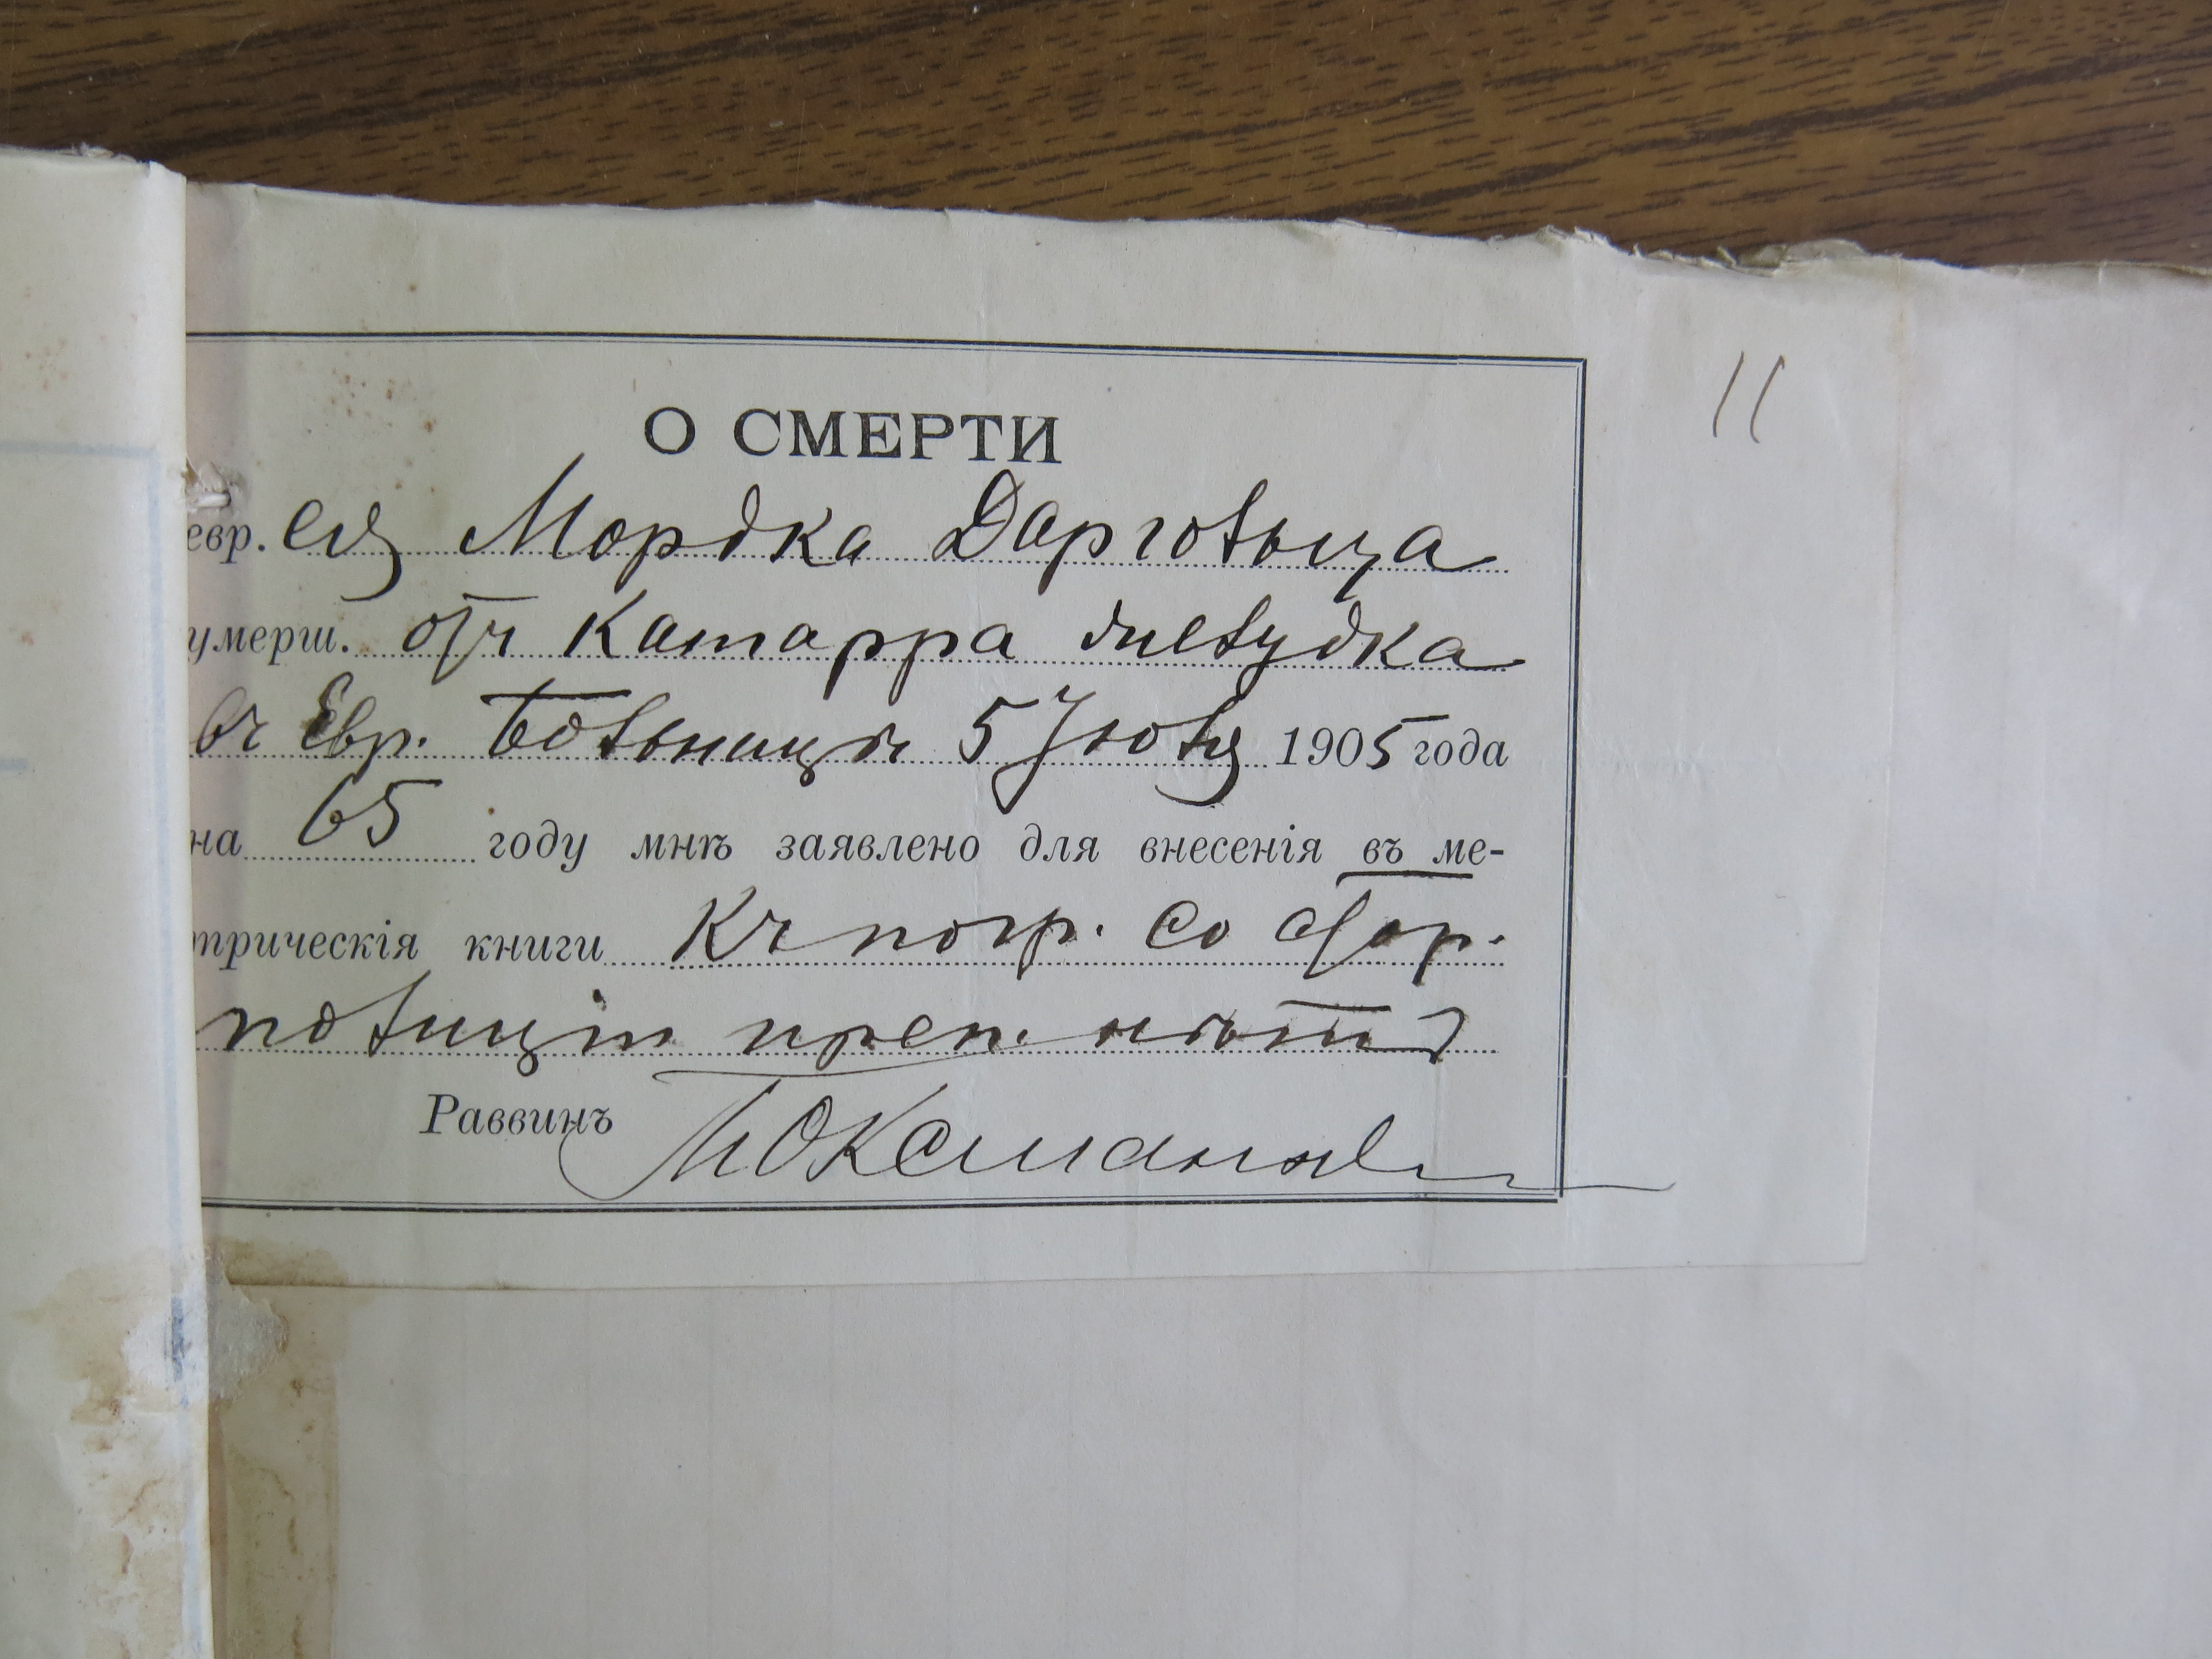 11
О СМЕРТИ
евр. ея Мордка Дарговьца
умерш. отъ катарра желудка
въ Евр. Больницѣ 5 Іюля 1905 года
на 65 году мнѣ заявлено для внесенія въ ме-
трическія книги Къ погр. со стор.
полиціи преп. нѣтъ
Раввинъ